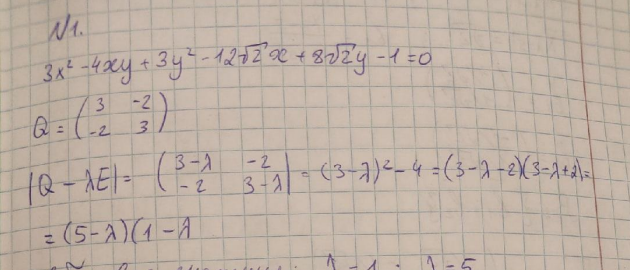 N1.
3x² - 4xy + 3y² - 12√2x + 8√2y - 1 = 0
Q = (3 -2
-2 3)
|Q - λE| = (3-λ -2
-2 3-λ| = (3-λ)² - 4 = (3-λ-2)(3-λ+2) =
= (5-λ)(1-λ
λ = 1 ; λ = 5